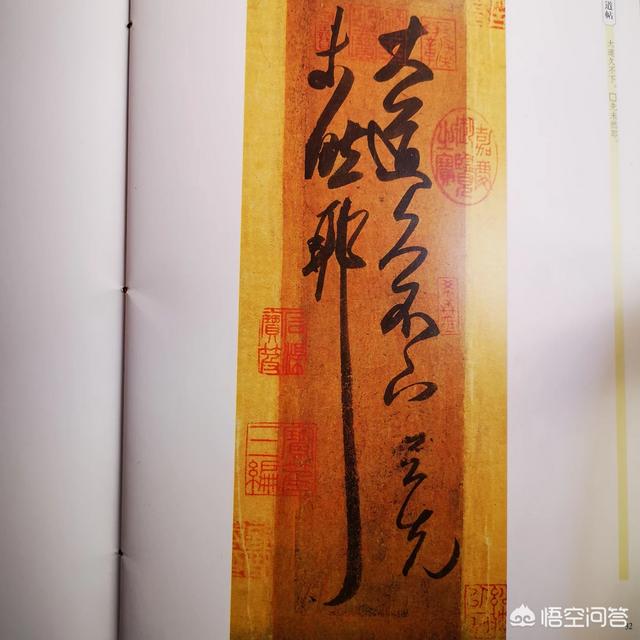 道帖
大道久不下，□先未然耶。
大道久不下与先
未然耶
嘉慶御覽之寶
石渠寶笈
悟空问答